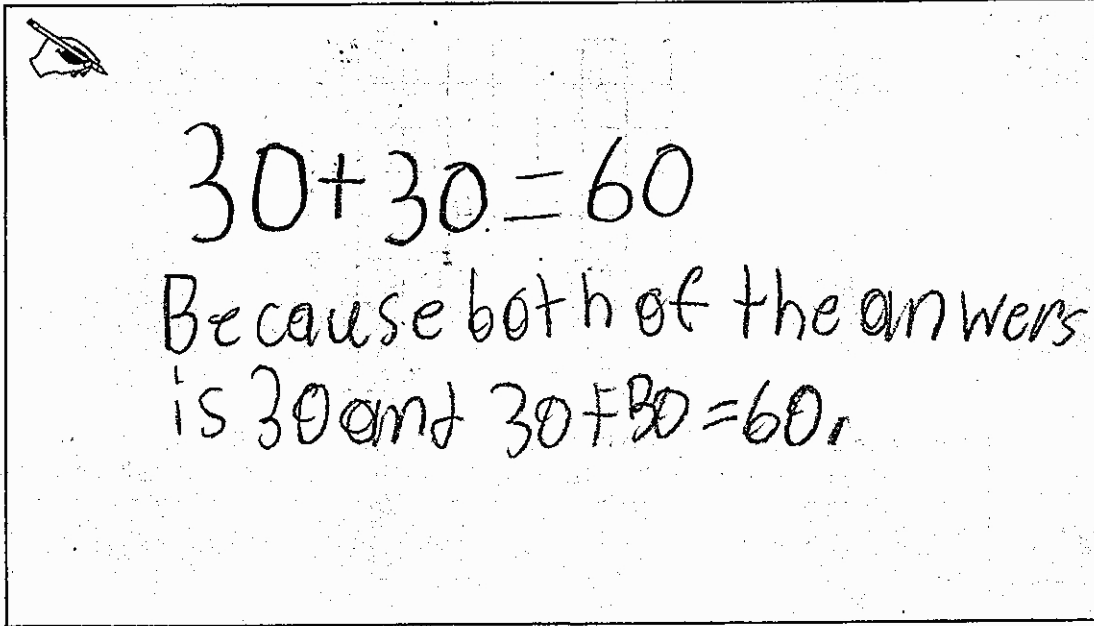 30+30=60
Because both of the anwers
is 30 and 30+30=60.